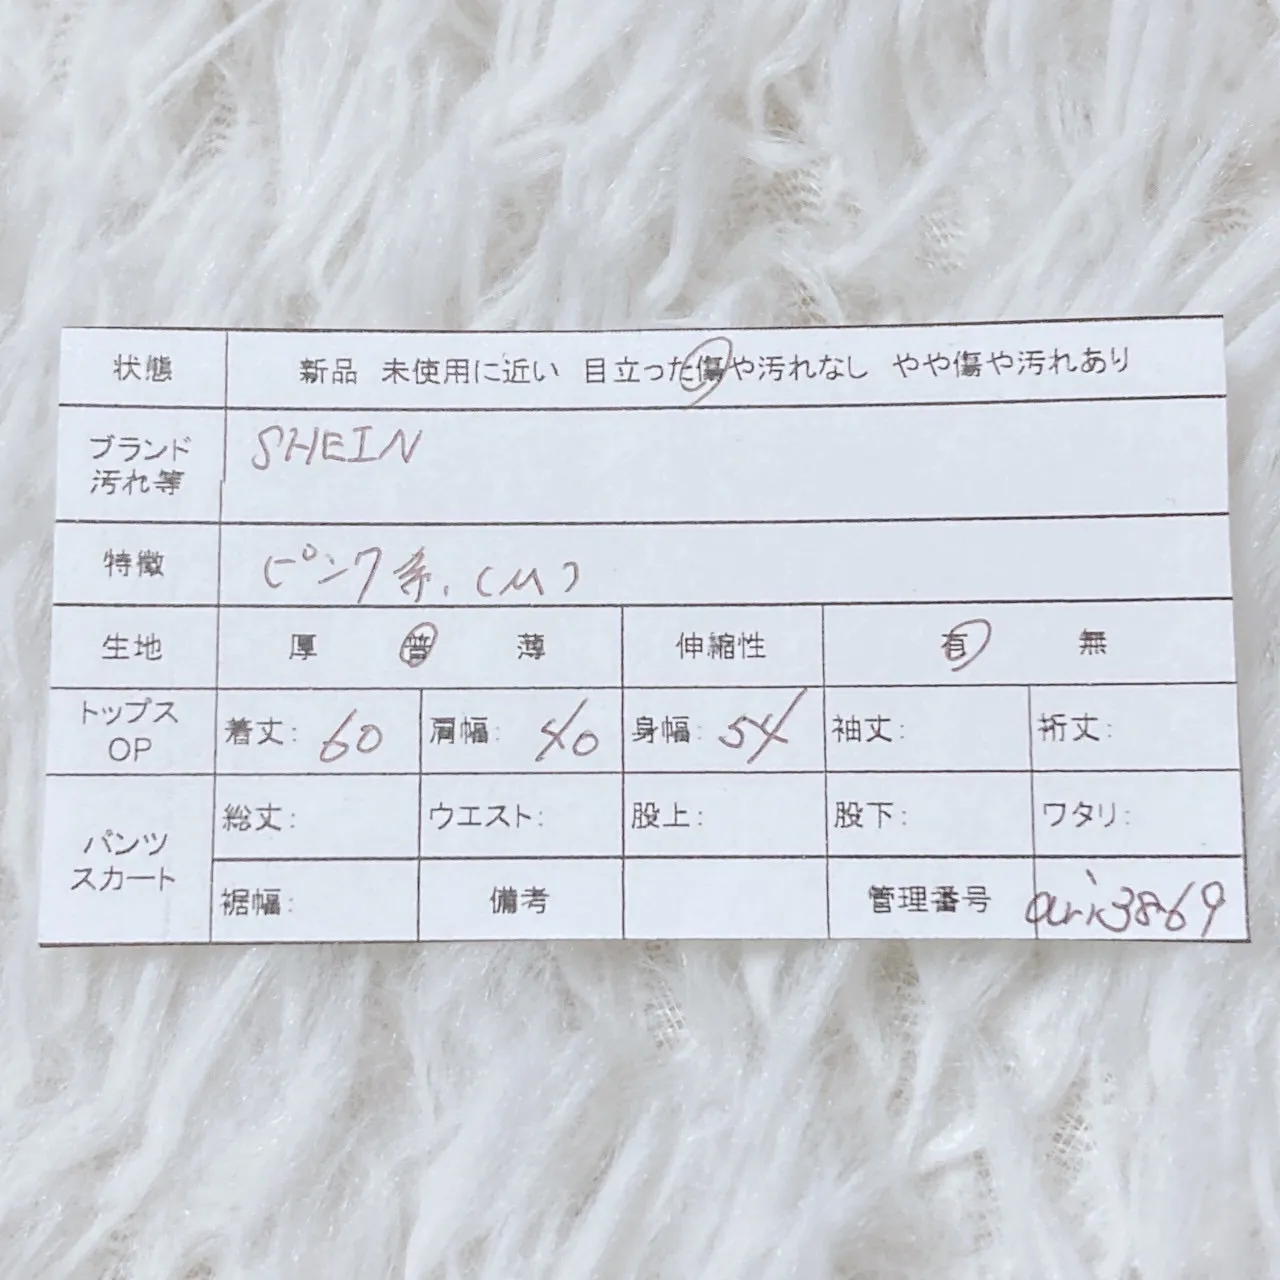 状態 新品 未使用に近い 目立った傷や汚れなし やや傷や汚れあり
ブランド SHEIN
汚れ等
特徴 ピンク系.(M)
生地 厚 普 薄 伸縮性 有 無
トップス
OP 着丈: 60 肩幅: 40 身幅: 54 袖丈: 裄丈:
パンツ
スカート 総丈: ウエスト: 股上: 股下: ワタリ:
裾幅: 備考 管理番号 ari3869